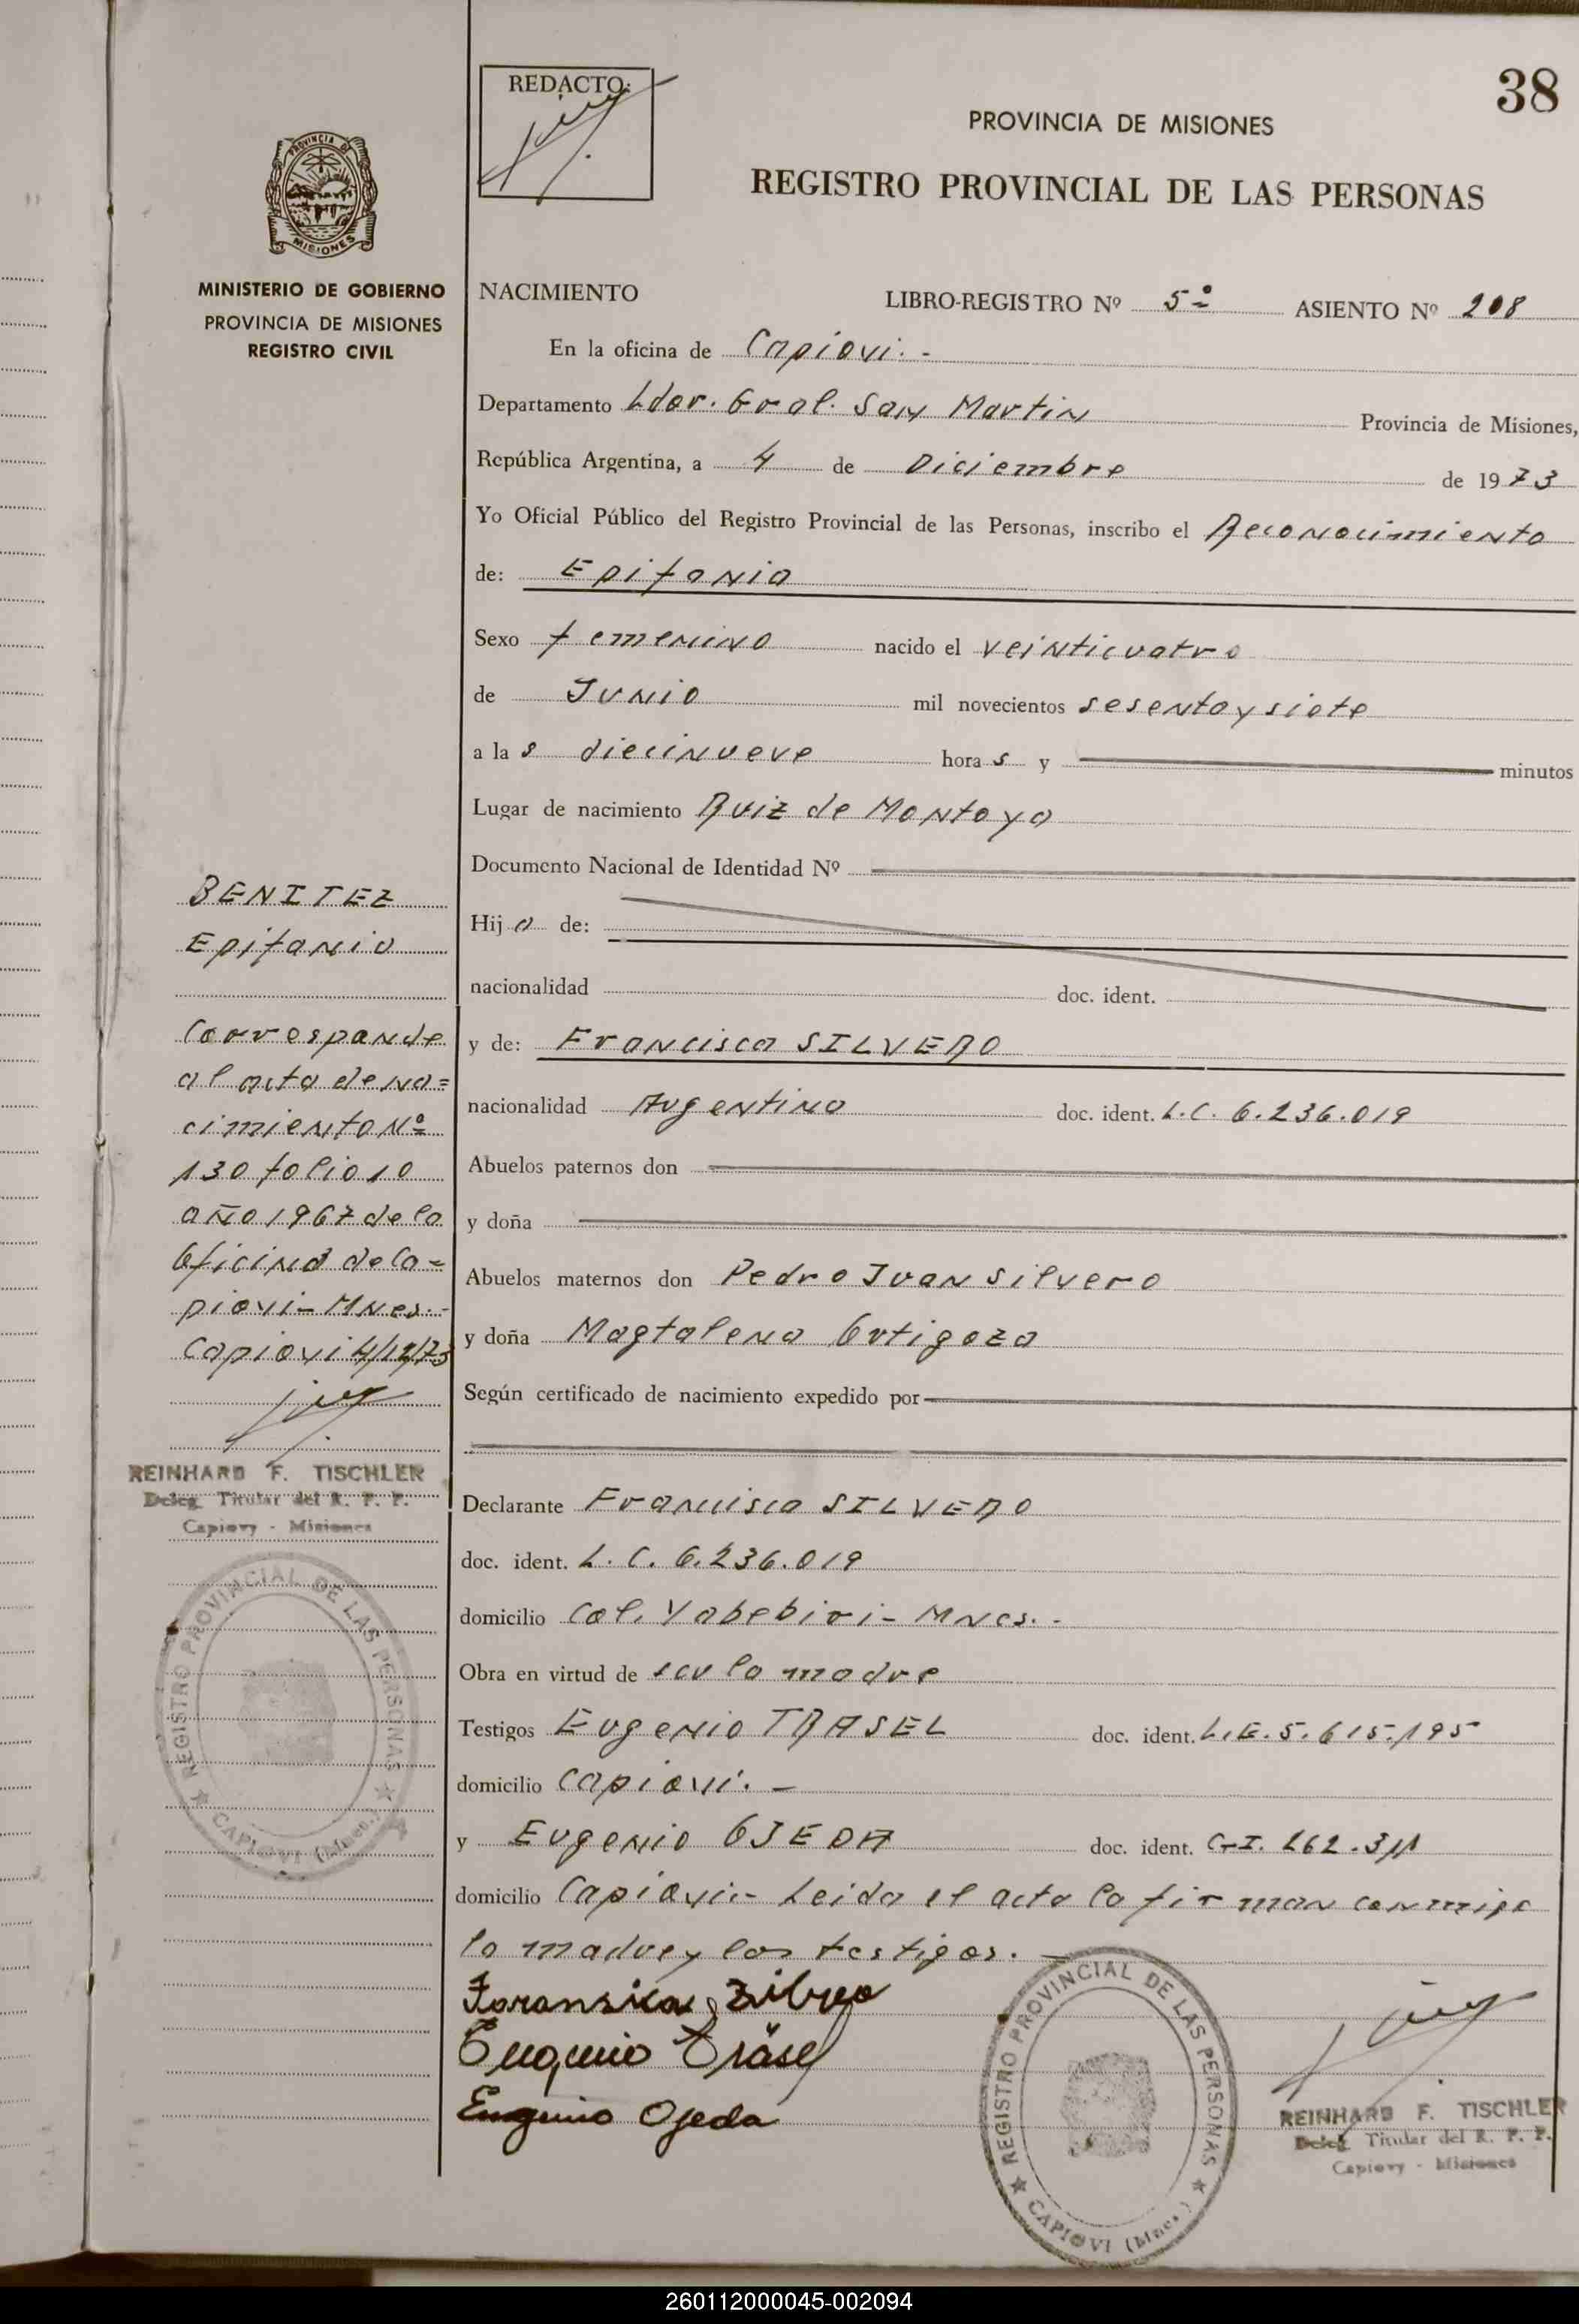 38
REDACTO:
PROVINCIA DE MISIONES
REGISTRO PROVINCIAL DE LAS PERSONAS
PROVINCIA DE
MISIONES
MINISTERIO DE GOBIERNO
PROVINCIA DE MISIONES
REGISTRO CIVIL
NACIMIENTO LIBRO-REGISTRO Nº 5º ASIENTO Nº 208
En la oficina de Capiovi.-
Departamento Ldor. Gral. San Martin Provincia de Misiones,
República Argentina, a 4 de Diciembre de 1973
Yo Oficial Público del Registro Provincial de las Personas, inscribo el Reconocimiento
de: Epifania
Sexo femenino nacido el veinticuatro
de Junio mil novecientos sesenta y siete
a la s diecinueve hora s y minutos
Lugar de nacimiento Ruiz de Montoya
Documento Nacional de Identidad Nº
Hij a de:
nacionalidad doc. ident.
y de: Francisca SILVERO
nacionalidad Argentina doc. ident. L.C. 6.236.019
Abuelos paternos don
y doña
Abuelos maternos don Pedro Juan Silvero
y doña Magtalena Ortigoza
Según certificado de nacimiento expedido por
Declarante Francisca SILVERO
doc. ident. L.C. 6.236.019
domicilio Col. Yabebiri-Mnes.-
Obra en virtud de ser la madre
Testigos Eugenio TRASEL doc. ident. L.E. 5.615.195
domicilio Capiovi.-
y Eugenio OJEDA doc. ident. C.I. 262.311
domicilio Capiovi.- Leida el acta la firman conmigo
la madre y los testigos.-
Eugenio Träsel
Eugenio Ojeda
REGISTRO PROVINCIAL DE LAS PERSONAS
CAPIOVI (Mnes.)
REINHARD F. TISCHLER
Deleg. Titular del R. P. P.
Capiovy - Misiones
BENITEZ
Epifania
Corresponde
al acta de na=
cimiento Nº
130 folio 10
año 1967 de la
Oficina de Ca=
piovi-Mnes.-
Capiovi 4/12/73
REINHARD F. TISCHLER
Deleg. Titular del R. P. P.
Capiovy - Misiones
REGISTRO PROVINCIAL DE LAS PERSONAS
CAPIOVI (Mnes.)
260112000045-002094